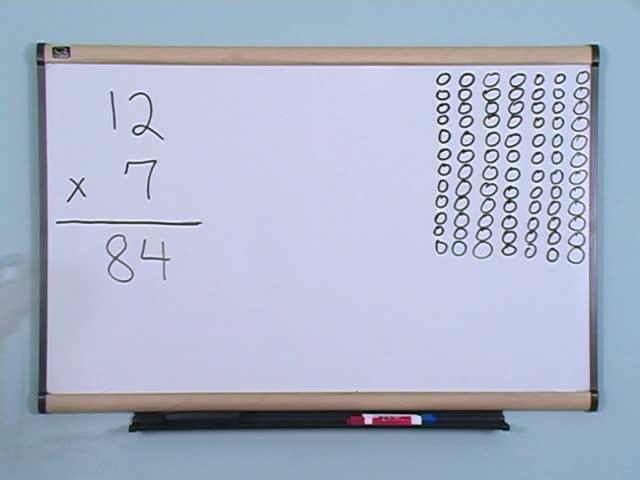 12
x 7
84